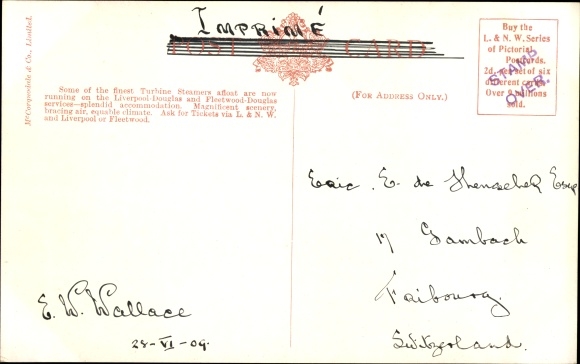 IMPRIMÉ
POST CARD
McCorquodale & Co., Limited.
Some of the finest Turbine Steamers afloat are now
running on the Liverpool-Douglas and Fleetwood-Douglas
services—splendid accommodation. Magnificent scenery,
bracing air, equable climate. Ask for Tickets via L. & N. W.
and Liverpool or Fleetwood.
(FOR ADDRESS ONLY.)
Buy the
L. & N.W. Series
of Pictorial
Postcards.
2d. per set of six
different cards.
Over 9 millions
sold.
STAMP
OVER.
Eric. E. de Thenschel Esq
17 Gambach
Fribourg.
Switzerland.
E. W. Wallace
28-VI-09.